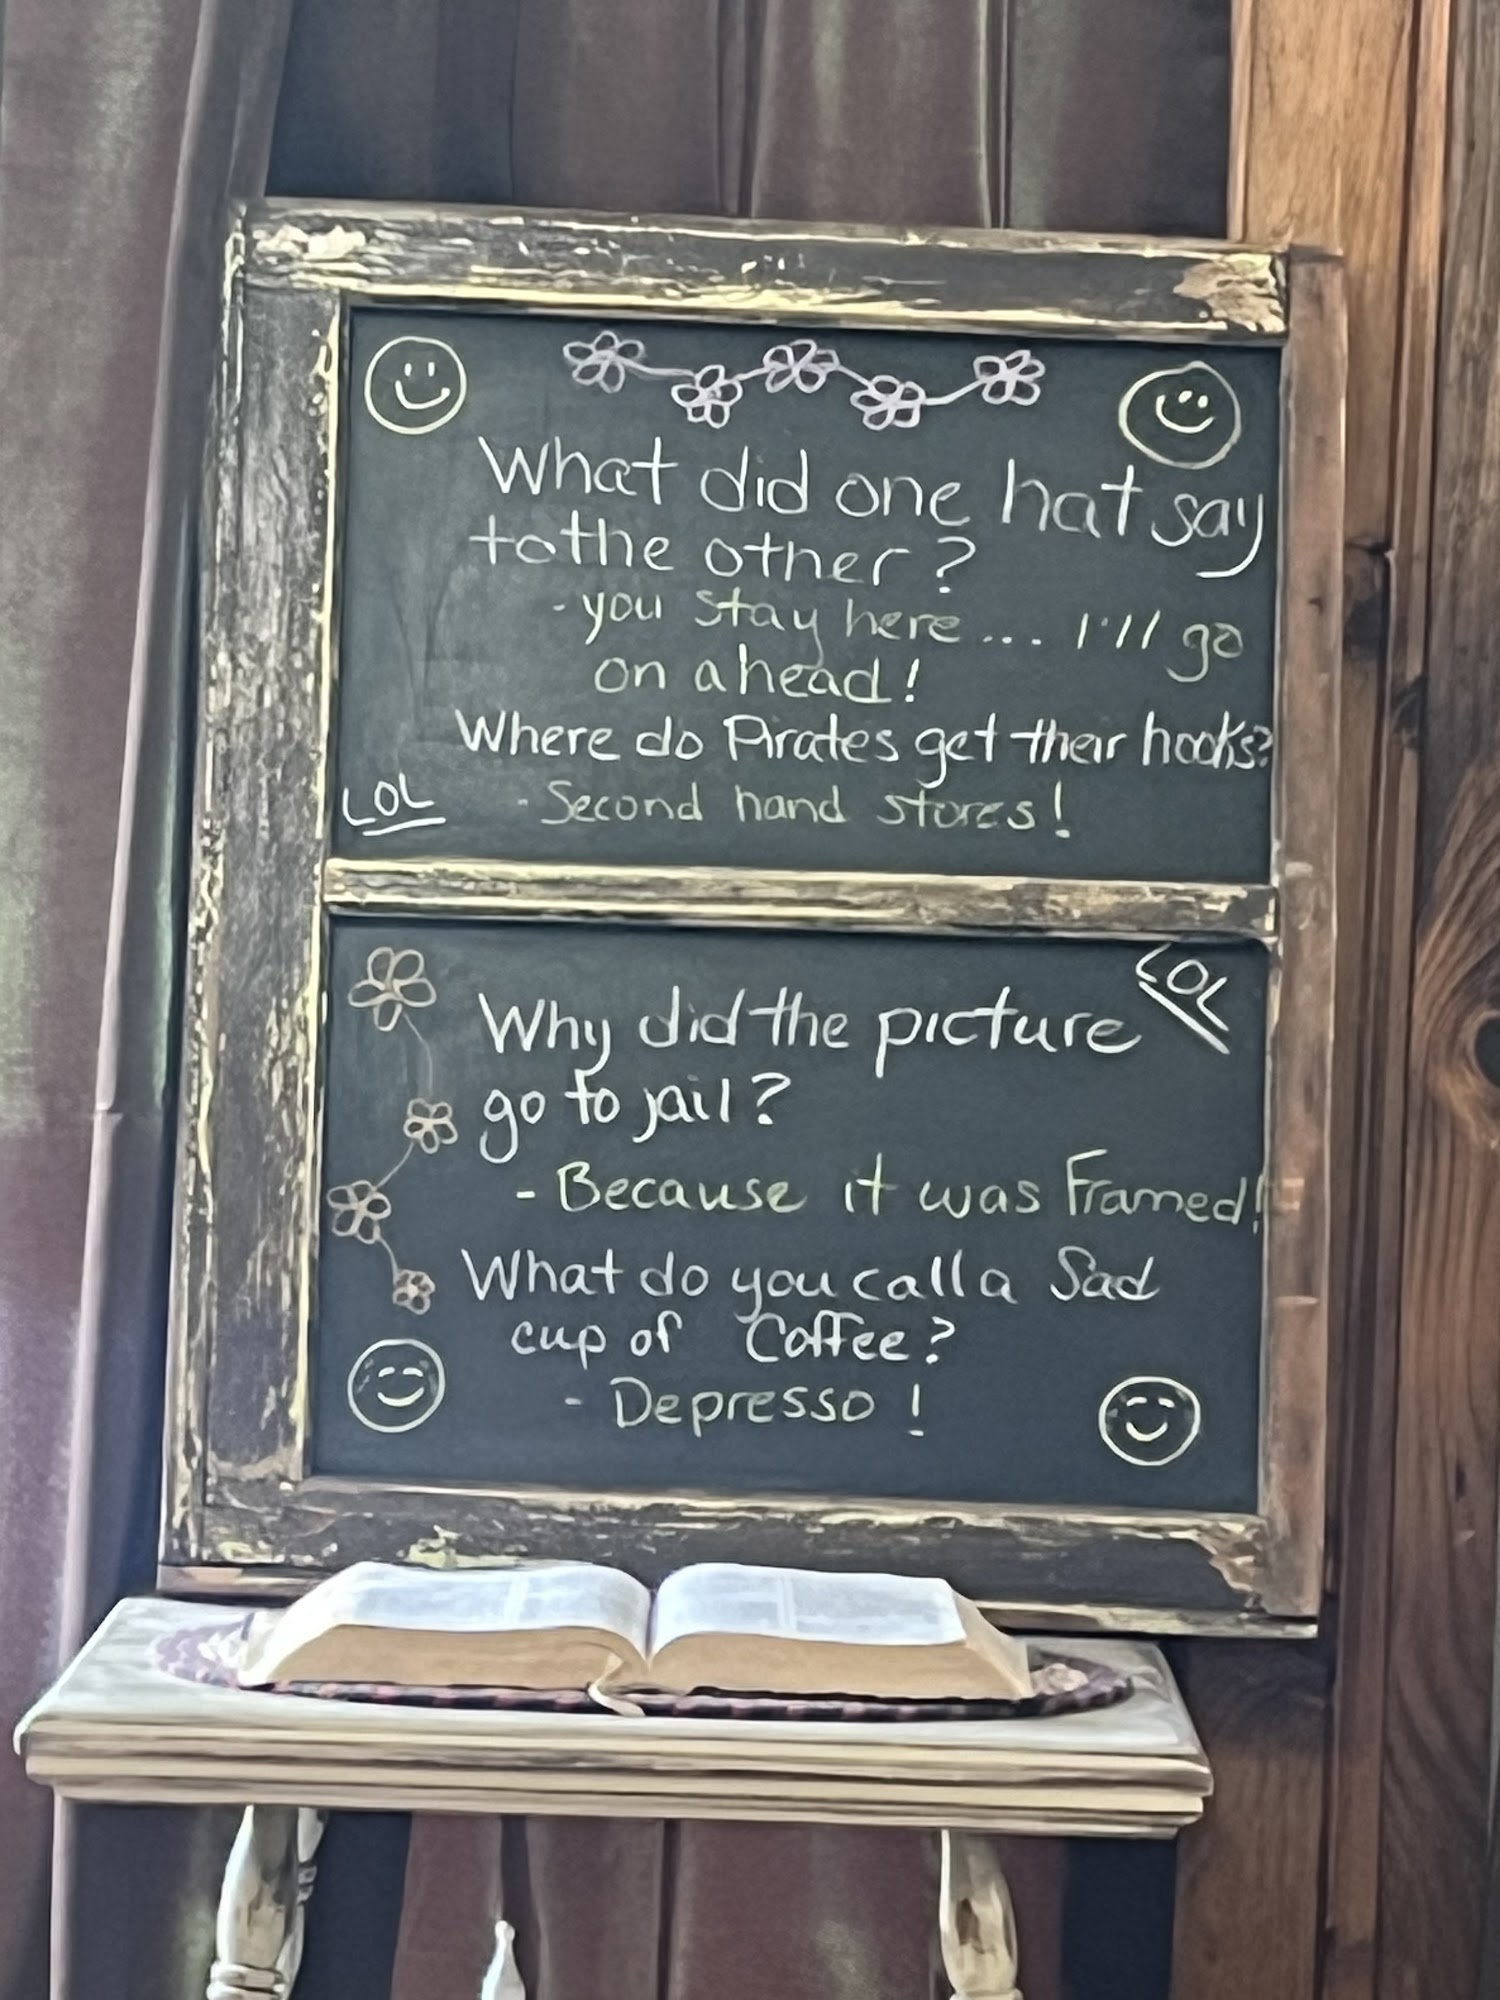 What did one hat say
to the other?
- you stay here... I'll go
on ahead!
Where do Pirates get their hooks?
LOL
- Second hand stores!
LOL
Why did the picture
go to jail?
- Because it was Framed!
What do you call a Sad
cup of Coffee?
- Depresso!